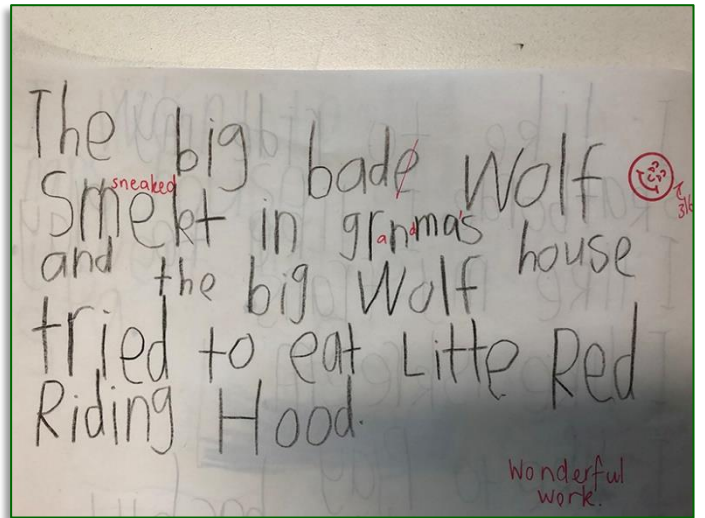 The big bade Wolf
sneaked
Smekt in grandma's house
and the big Wolf
tried to eat Litte Red
Riding Hood.
Wonderful
work.